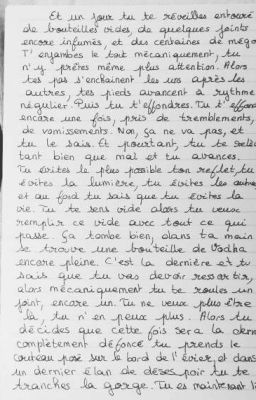 Et un jour tu te réveilles entouré
de bouteilles vides, de quelques joints
encore infumés, et des centaines de mégo
T'enjambes le tout mécaniquement, tu
n'y prêtes même plus attention. Alors
tes pas s'enchainent les uns après les
autres, tes pieds avancent à rythme
régulier. Puis tu t'effondres. Tu t'effon
encore une fois, pris de tremblements,
de vomissements. Non, ça ne va pas, et
tu le sais. Et pourtant, tu te
tant bien que mal et tu avances.
Tu évites le plus possible ton reflet, tu
évites la lumière, tu évites les autres
et au fond tu sais que tu évites la
vie. Tu te sens vide alors tu veux
remplir ce vide avec tout ce qui
passe. Ça tombe bien, dans ta main
se trouve une bouteille de Vodka
encore pleine. C'est la dernière et tu
sais que tu vas devoir ressortir,
alors mécaniquement tu te roules un
joint, encore un. Tu ne veux plus être
là, tu n'en peux plus. Alors tu
décides que cette fois sera la dern
complètement défoncé tu prends le
couteau posé sur le bord de l'évier, et dans
un dernier élan de désespoir tu te
tranches la gorge. Tu es maintenant li